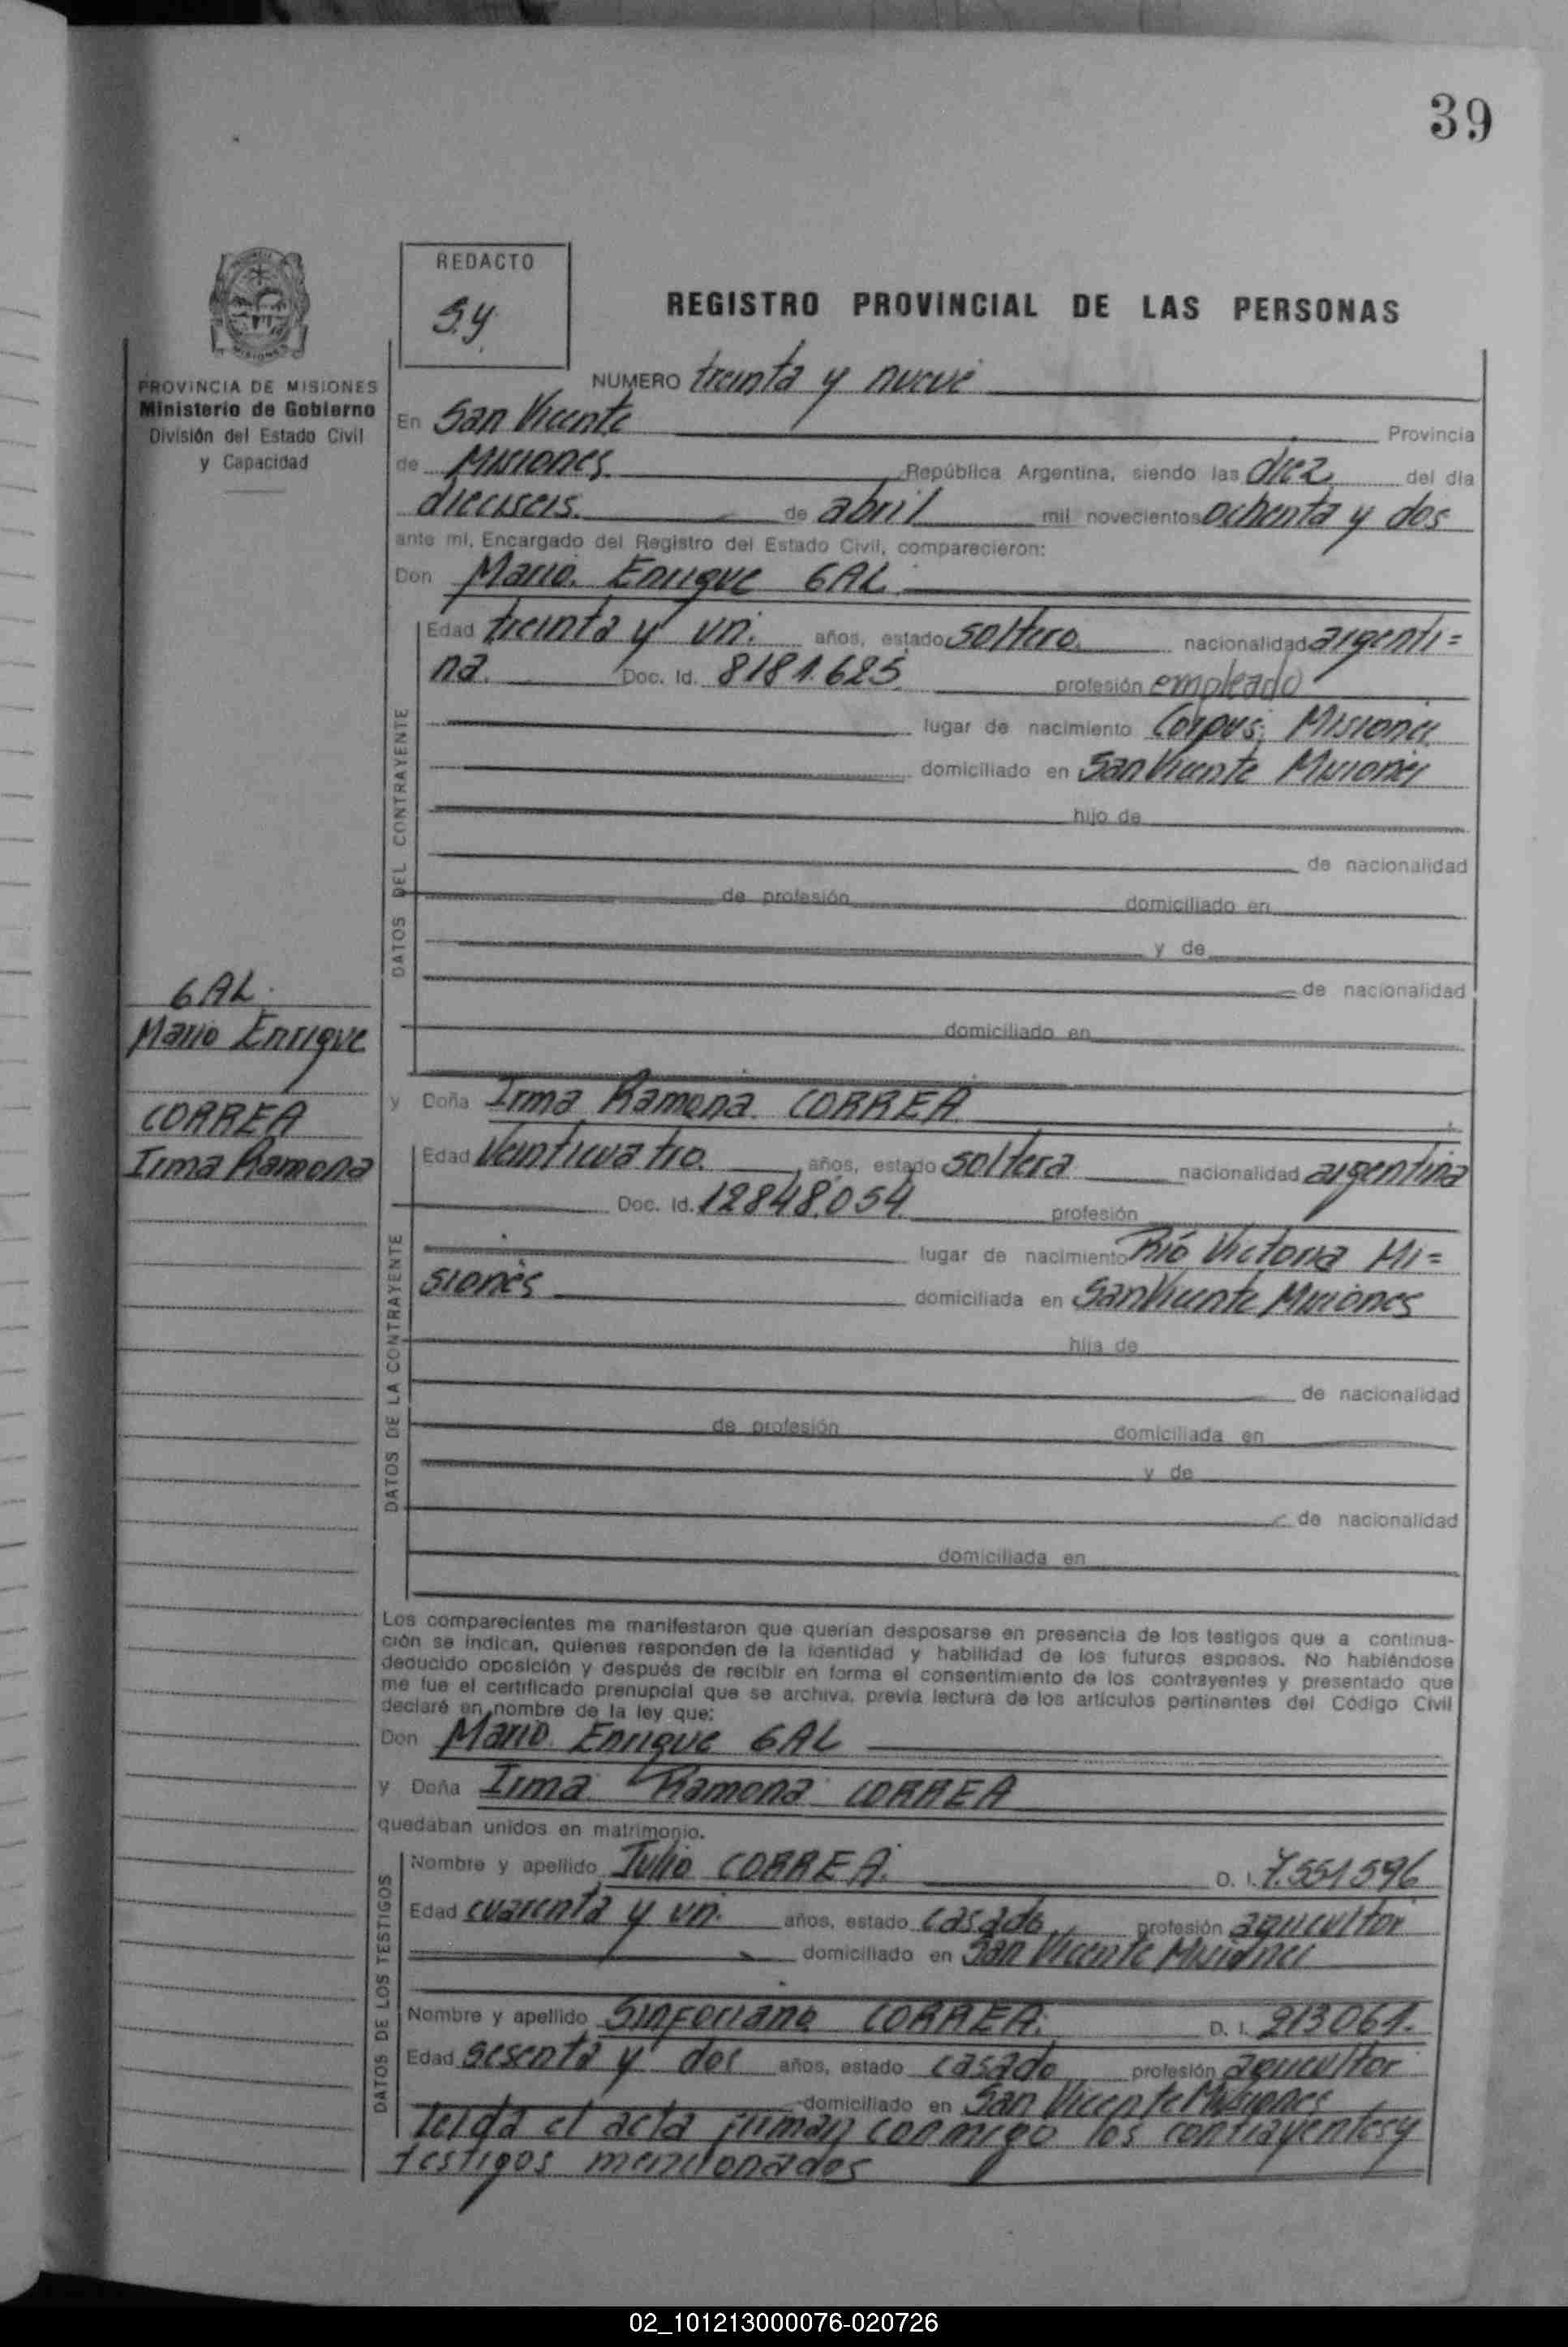 39
REDACTO
S.y.
REGISTRO PROVINCIAL DE LAS PERSONAS
PROVINCIA DE MISIONES
Ministerio de Gobierno
División del Estado Civil
y Capacidad
NUMERO treinta y nueve
En San Vicente Provincia
de Misiones República Argentina, siendo las diez del día
dieciseis de abril mil novecientos ochenta y dos
ante mí, Encargado del Registro del Estado Civil, comparecieron:
Don Mario Enrique GAL
DATOS DEL CONTRAYENTE
Edad treinta y un. años, estado soltero nacionalidad argenti=
na. Doc. Id. 8181.625 profesión empleado
lugar de nacimiento Corpus, Misiones
domiciliado en San Vicente Misiones
hijo de
de nacionalidad
de profesión domiciliado en
y de
de nacionalidad
domiciliado en
GAL
Mario Enrique
CORREA
Irma Ramona
y Doña Irma Ramona CORREA
DATOS DE LA CONTRAYENTE
Edad Veinticuatro años, estado soltera nacionalidad argentina
Doc. Id. 12848.054 profesión
lugar de nacimiento Río Victoria Mi=
siones domiciliada en San Vicente Misiones
hija de
de nacionalidad
de profesión domiciliada en
y de
de nacionalidad
domiciliada en
Los comparecientes me manifestaron que querían desposarse en presencia de los testigos que a continua-
ción se indican, quienes responden de la identidad y habilidad de los futuros esposos. No habiéndose
deducido oposición y después de recibir en forma el consentimiento de los contrayentes y presentado que
me fue el certificado prenupcial que se archiva, previa lectura de los artículos pertinentes del Código Civil
declaré en nombre de la ley que:
Don Mario Enrique GAL
y Doña Irma Ramona CORREA
quedaban unidos en matrimonio.
DATOS DE LOS TESTIGOS
Nombre y apellido Julio CORREA. D. I. 7.551596
Edad cuarenta y un. años, estado casado profesión agricultor
domiciliado en San Vicente Misiones
Nombre y apellido Sinforiano CORREA. D. I. 213061.
Edad sesenta y dos años, estado casado profesión agricultor
domiciliado en San Vicente Misiones
leida el acta firman conmigo los contrayentes y
testigos mencionados
02_101213000076-020726